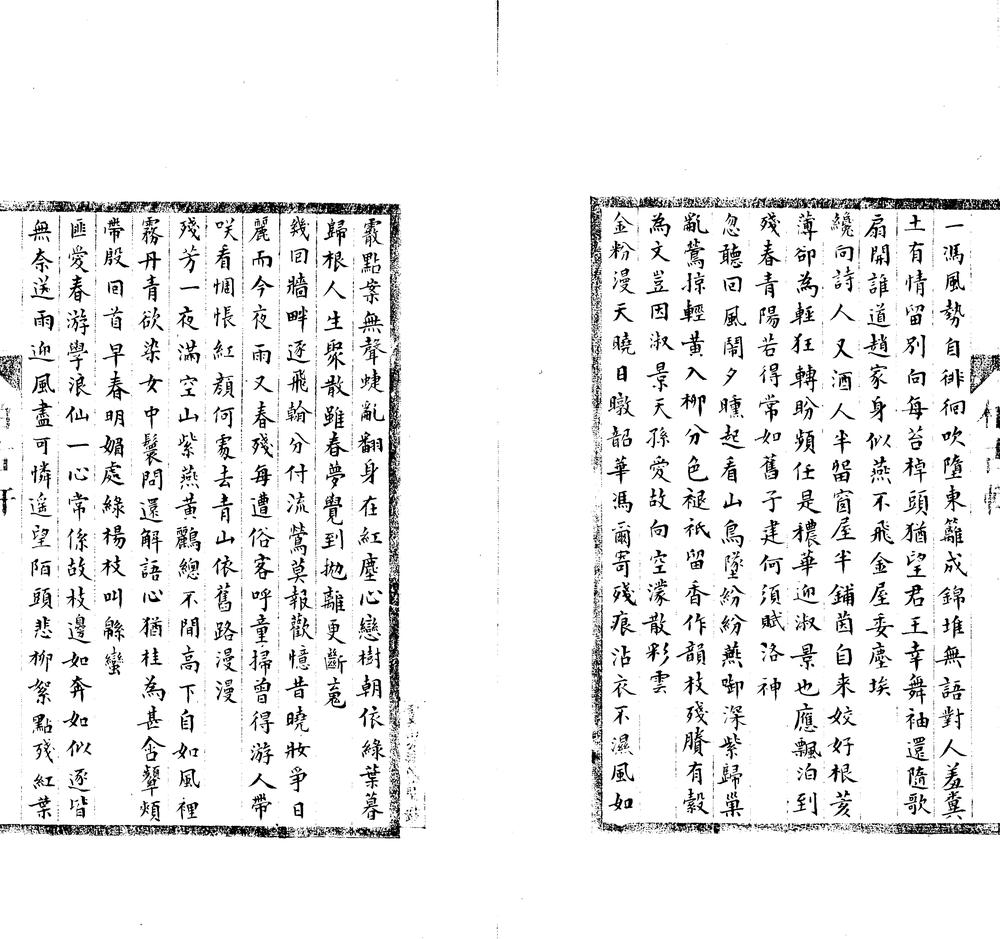 一馮風勢自徘徊吹墮東籬成錦堆無語對人羞糞
土有情留別向每苔棹頭猶望君王幸舞袖還隨歌
扇開誰道趙家身似燕不飛金屋委塵埃
纔向詩人又酒人半留窗屋半鋪茵自来姣好根荄
薄卻為輕狂轉盼頻任是穠華迎淑景也應飄泊到
殘春青陽若得常如舊子建何須賦洛神
忽聽回風鬧夕曛起看山鳥墜紛紛燕啣深紫歸巢
亂鶯掠輕黃入柳分色褪衹留香作韻枝殘賸有縠
為文豈因淑景天孫愛故向空濛散彩雲
金粉漫天曉日暾韶華馮爾寄殘痕沾衣不濕風如
霰點案無聲蜨亂翻身在紅塵心戀樹朝依綠葉暮
歸根人生聚散雖春夢覺到拋離更斷䰟
幾回牆畔逐飛輪分付流鶯莫報歡憶昔曉妝爭日
麗而今夜雨又春殘每遭俗客呼童掃曾得游人帶
咲看惆悵紅顏何處去青山依舊路漫漫
殘芳一夜滿空山紫燕黃鸝總不閒高下自如風裡
霧丹青欲染女中鬟問還解語心猶桂為甚含顰頰
帶殷回首早春明媚處綠楊枝叫緜蠻
匪愛春游學浪仙一心常係故枝邊如奔如似逐皆
無奈送雨迎風盡可憐遥望陌頭悲柳絮點殘紅葉